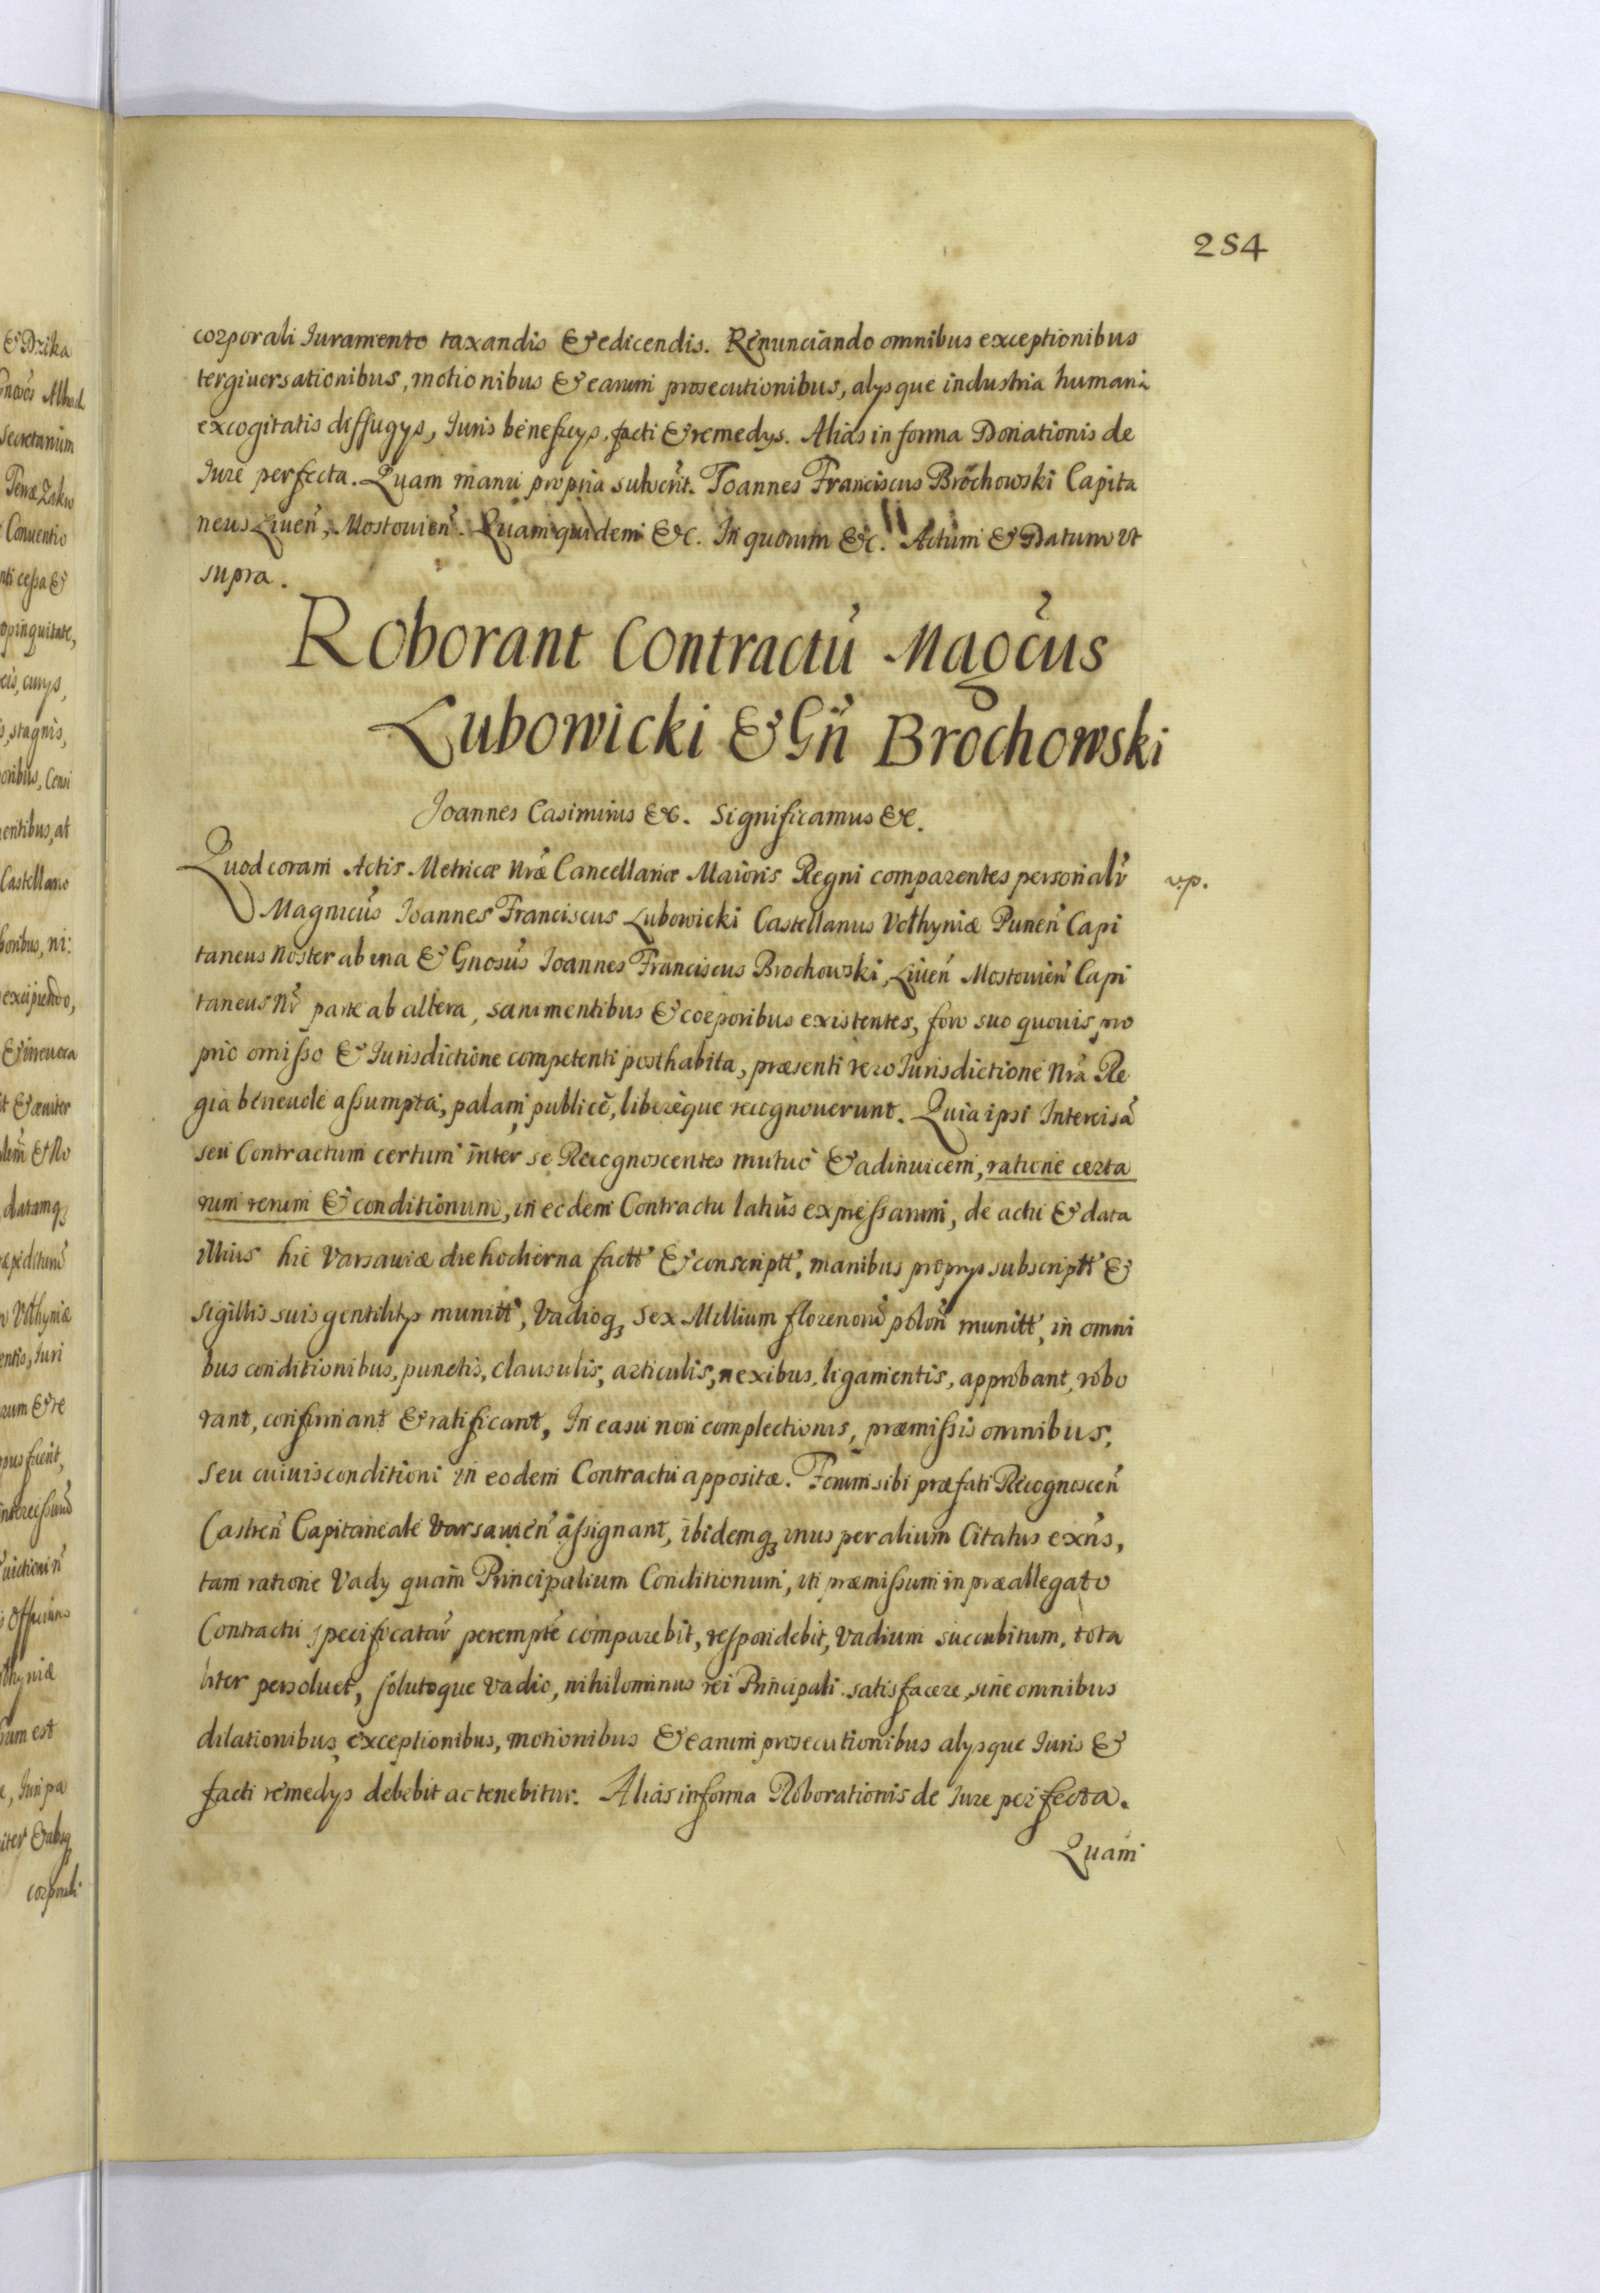 254
corporali Iuramento taxandis & edicendis. Renunciando omnibus exceptionibus
tergiuersationibus, motionibus & earum prosecutionibus, alysque industria humana
excogitatis diffugys, Iuris beneficys, facti & remedys. Alias in forma Donationis de
Iure perfecta. Quam manu propria subscrit. Joannes Franciscus Brochowski Capita
neus Liuen, Mostouien. Quam quidem &c. In quorum &c. Actum & Datum vt
supra.
Roborant Contractũ Magcus
Lubowicki & Gñ Brochowski
Joannes Casimirus &c. Significamus &c.
Quod coram Actis Metricæ Nræ Cancellariæ Maioris Regni comparentes personalr
v.p.
Magnicus Ioannes Franciscus Lubowicki Castellanus Volhyniæ Punen Capi
taneus Noster ab vna & Gnosus Joannes Franciscus Brochowski, Liuen Mostouien Capi
taneus Nr parte ab altera, sani mentibus & corporibus existentes, foro suo quouis pro
prio omisso & Iurisdictione competenti posthabita, præsenti vero Iurisdictione Nra Re
gia beneuole assumpta, palam, publice, libereque recognouerunt. Quia ipsi Intercisã
seu Contractum certum inter se Recognoscentes mutuo & adinuicem, ratione certa
rum rerum & conditionum, in eodem Contractu latius expressarum, de actu & data
illius hic Varsauiæ die hodierna factt & conscriptt, manibus proprys subscriptt &
sigillis suis gentilitys munitt, Vadioq, sex Millium florenorũ polon munitt, in omni
bus conditionibus, punctis, clausulis, articulis, nexibus, ligamentis, approbant, robo
rant, confirmant & ratificant, In casu non complectionis, præmissis omnibus,
seu cuiuis conditioni in eodem Contractu appositæ. Forum sibi præfati Recognoscen
Castren Capitaneale Varsauien assignant, ibidemq, vnus per alium Citatus exns,
tam ratione Vady quam Principalium Conditionum, vti præmissum in præallegato
Contractu specificatur perempte comparebit, respondebit, Vadium succubitum, tota
liter persoluet, solutoque vadio, nihilominus rei Principali satisfacere, sine omnibus
dilationibus exceptionibus, motionibus & earum prosecutionibus alysque Iuris &
facti remedys debebit ac tenebitur. Alias in forma Roborationis de Iure perfecta.
Quam